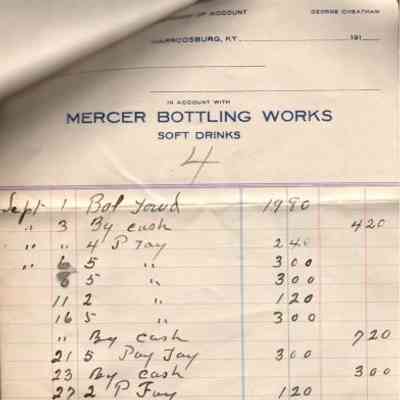 OF ACCOUNT
GEORGE CHEATHAM
HARRODSBURG, KY. 191
IN ACCOUNT WITH
MERCER BOTTLING WORKS
SOFT DRINKS
4
Sept 1 Bal 19 80
" 3 By cash 4 20
" " 4 P 2 40
" 6 5 " 3 00
8 5 " 3 00
11 2 " 1 20
16 5 " 3 00
" By cash 7 20
21 5 3 00
23 By cash 3 00
27 2 P 1 20